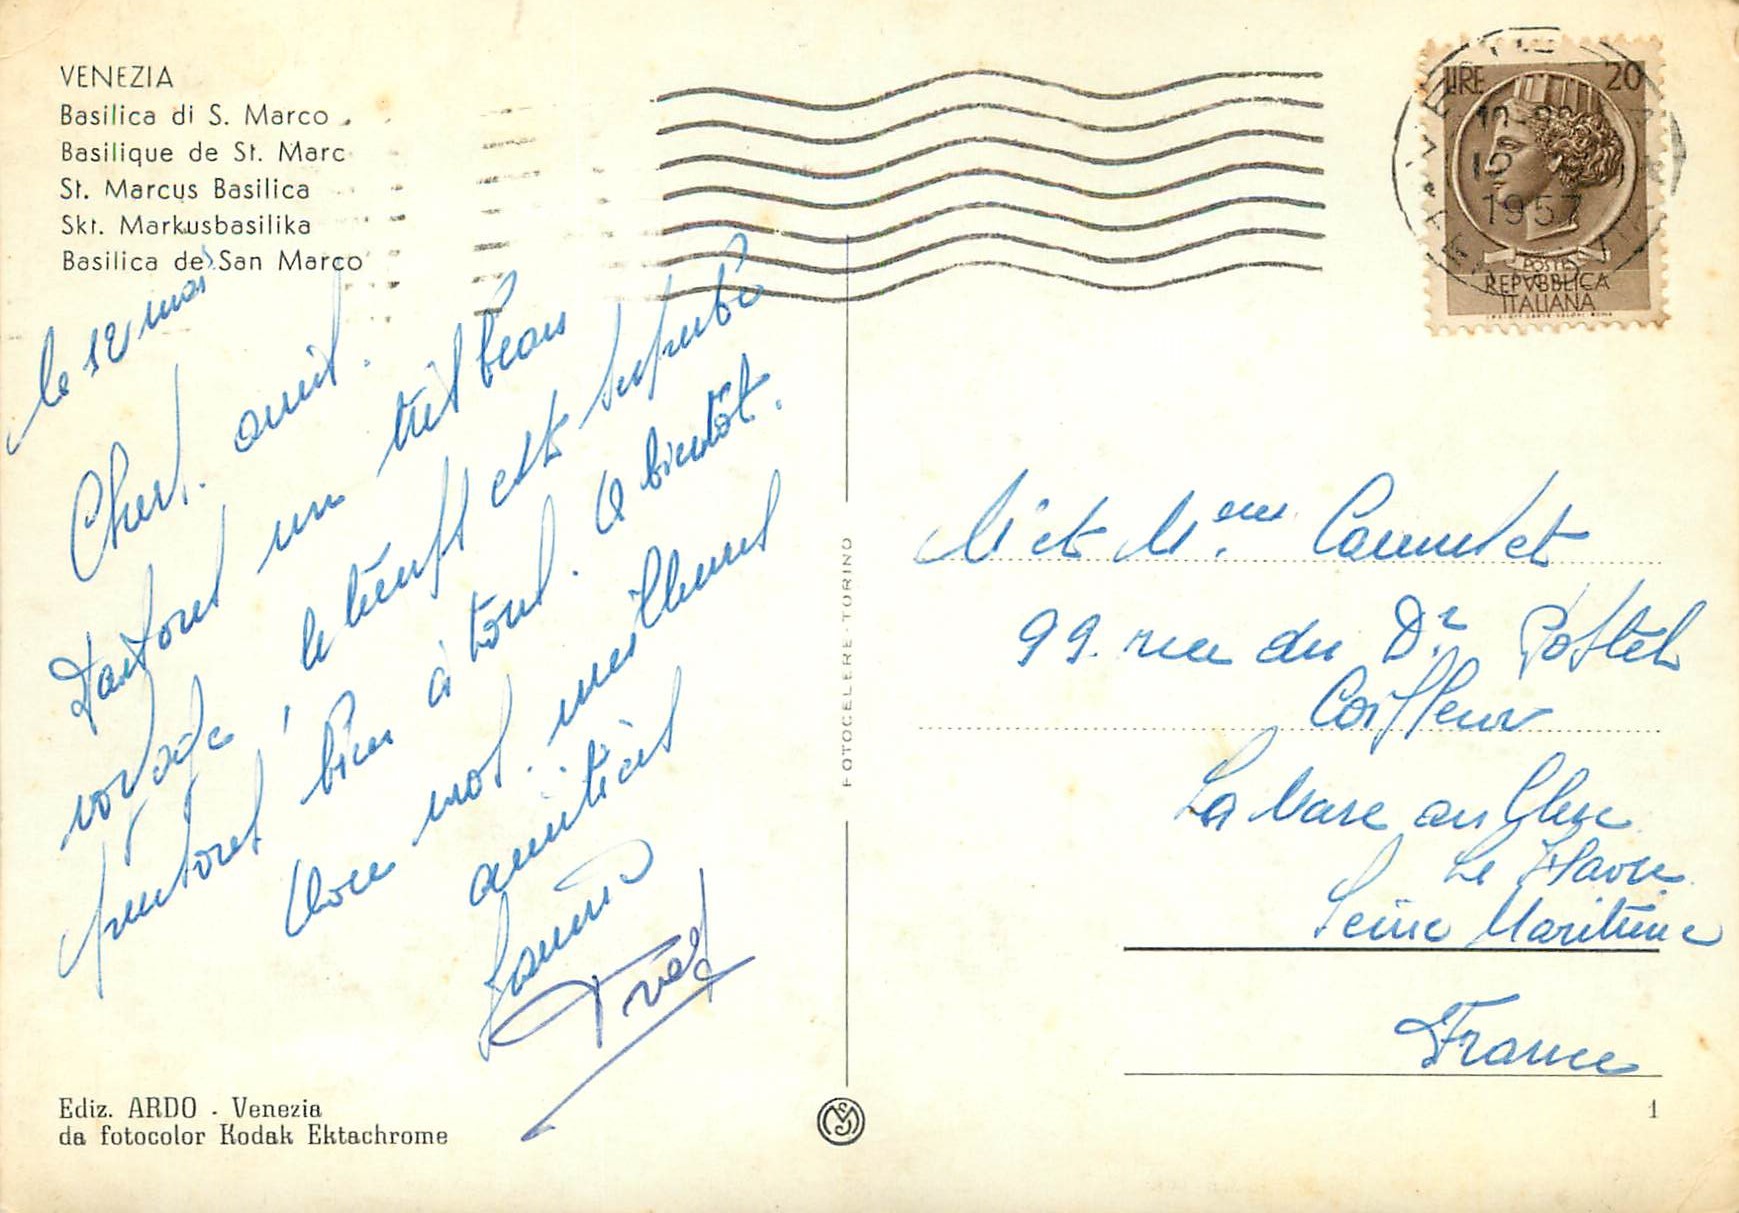 VENEZIA
Basilica di S. Marco
Basilique de St. Marc
St. Marcus Basilica
Skt. Markusbasilika
Basilica de San Marco
le 12 mai
Chers amis.
Faisons un très beau
voyage, le temps est superbe
pensons bien à vous. A bientôt.
Avec nos meilleures
amitiés
Fred
FOTOCELERE·TORINO
LIRE 20
POSTE
REPVBBLICA
ITALIANA
1957
M et Mme
99. rue du Dr Postel
Coiffeur
La Mare au Clerc
Le Havre
Seine Maritime
France
Ediz. ARDO - Venezia
da fotocolor Kodak Ektachrome
1